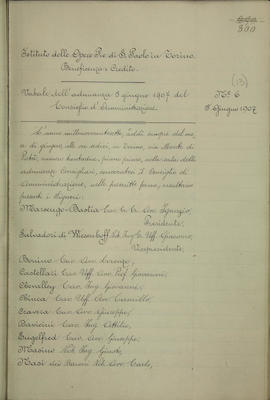 300
Istituto delle Opere Pie di S. Paolo in Torino.
Beneficenza e Credito.
(13)
Verbale dell'adunanza 5 giugno 1907 del
Consiglio d'Amministrazione.
N° 6
5 Giugno 1907
L'anno millenovecentosette, addì cinque del me-
se di giugno, alle ore sedici, in Torino, via Monte di
Pietà, numero trentadue, piano primo, nella sala delle
adunanze Consigliari, convocatosi il Consiglio di
Amministrazione, nelle prescritte forme, risultano
presenti i Signori:
Marsengo-Bastia Avv. Ignazio,
Presidente,
Salvadori di Wiesenhoff Giacomo,
Vicepresidente,
Bonino Cav. Avv. Lorenzo,
Castellari Cav. Uff. Avv. Prof. Giovanni,
Chevalley Cav. Ing. Giovanni,
Cav. Uff. Avv. Camillo,
Cravero Cav. Avv. Giuseppe,
Cav. Ing. Attilio,
Engelfred Cav. Avv. Giuseppe,
Masino Ing. Giusto,
Nasi dei Baroni Avv. Carlo,